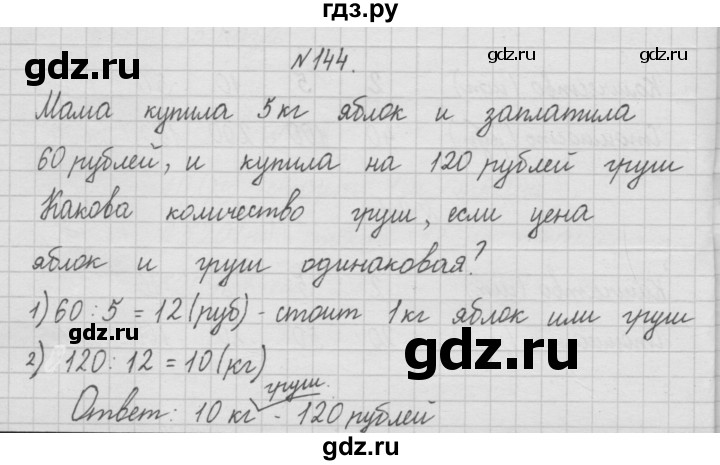 гдз.ру
№144.
Мама купила 5кг яблок и заплатила
60 рублей, и купила на 120 рублей груш
Какова количество груш, если цена
яблок и груш одинаковая?
1) 60 : 5 = 12 (руб) - стоит 1кг яблок или груш
2) 120 : 12 = 10 (кг)
груш.
Ответ: 10 кг - 120 рублей
gdz.ru
gdz.ru
gdz.ru
gdz.ru
gdz.ru
gdz.ru
gdz.ru